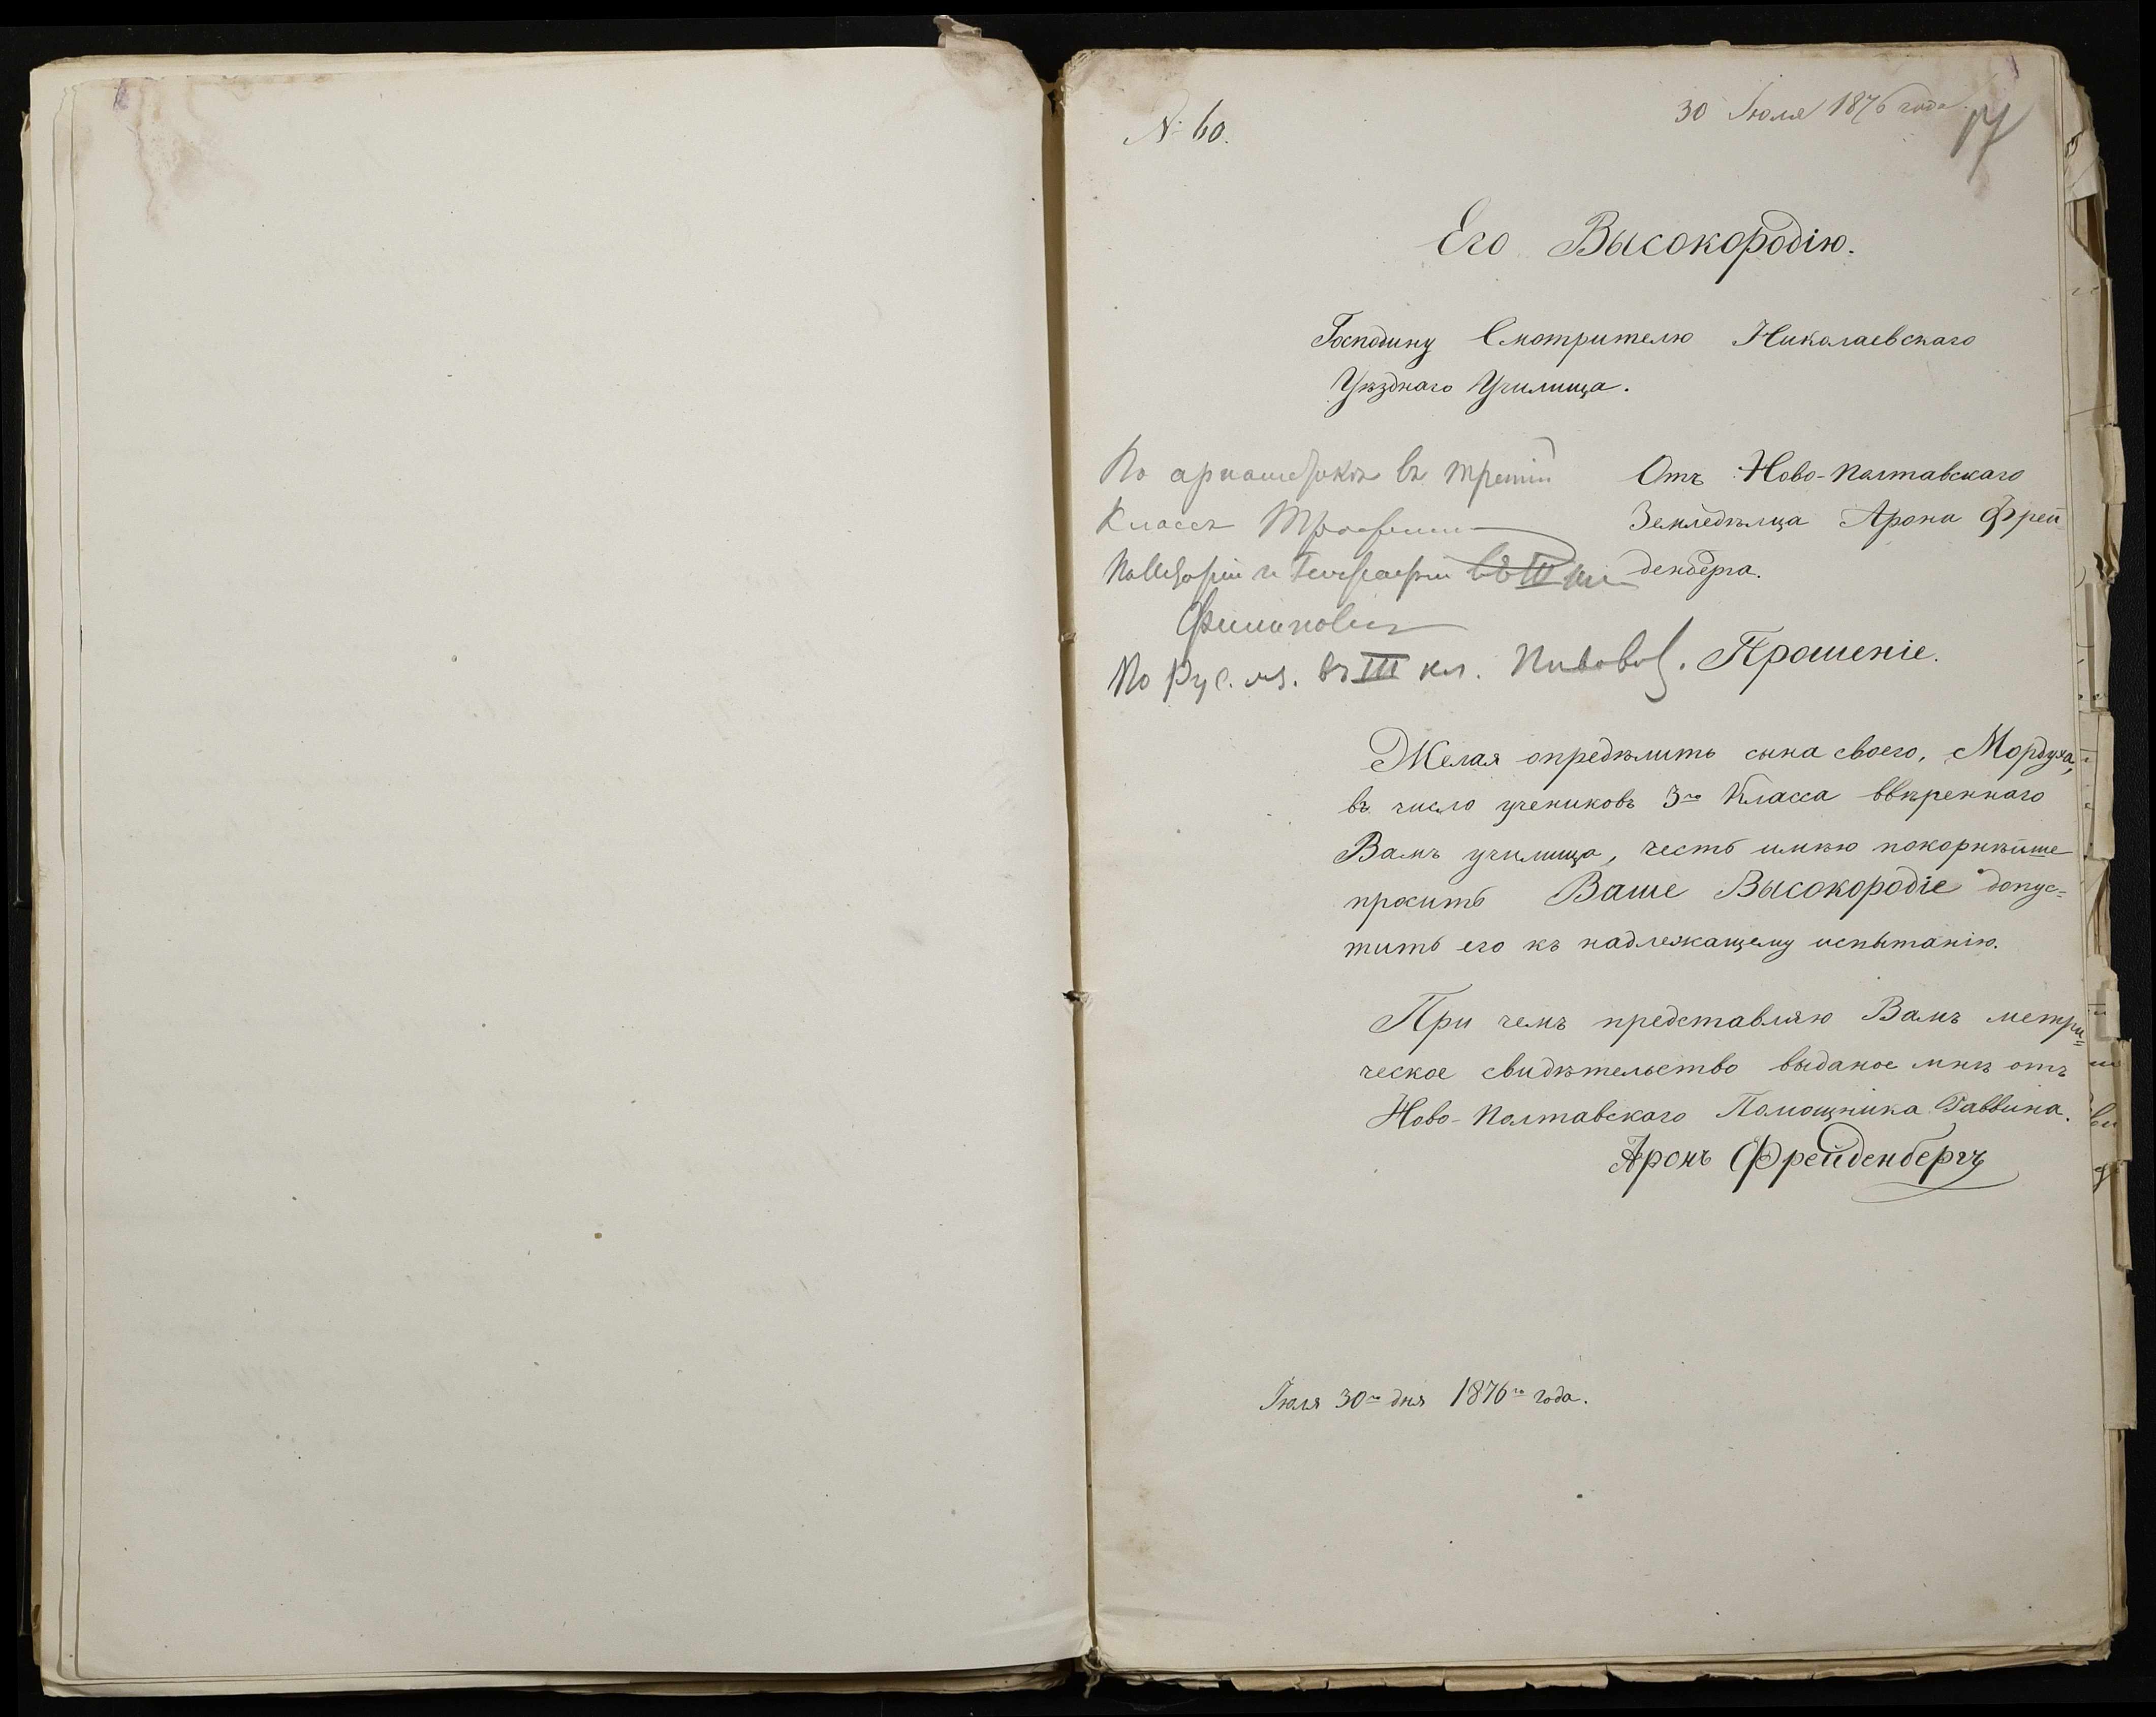 № 60.
30 Іюля 1876 года.
17
Его Высокородію.
Господину Смотрителю Николаевскаго
Уѣзднаго Училища.
Отъ Ново-Полтавскаго
Земледѣльца Арона Фрей
денберга.
По ариөметикѣ въ третій
классъ
По Исторіи и Географіи въ III кл
Филиповичъ
По Рус. яз. въ III кл.
Прошеніе.
Желая опредѣлить сына своего, Мордуха,
въ число учениковъ 3го Класса ввѣреннаго
Вамъ училища, честь имѣю покорнѣйше
просить Ваше Высокородіе допус=
тить его къ надлежащему испытанію.
При чемъ представляю Вамъ метри=
ческое свидѣтельство выданое мнѣ отъ
Ново-Полтавскаго Помощника Раввина.
Аронъ Фрейденбергъ
Іюля 30го дня 1876го года.